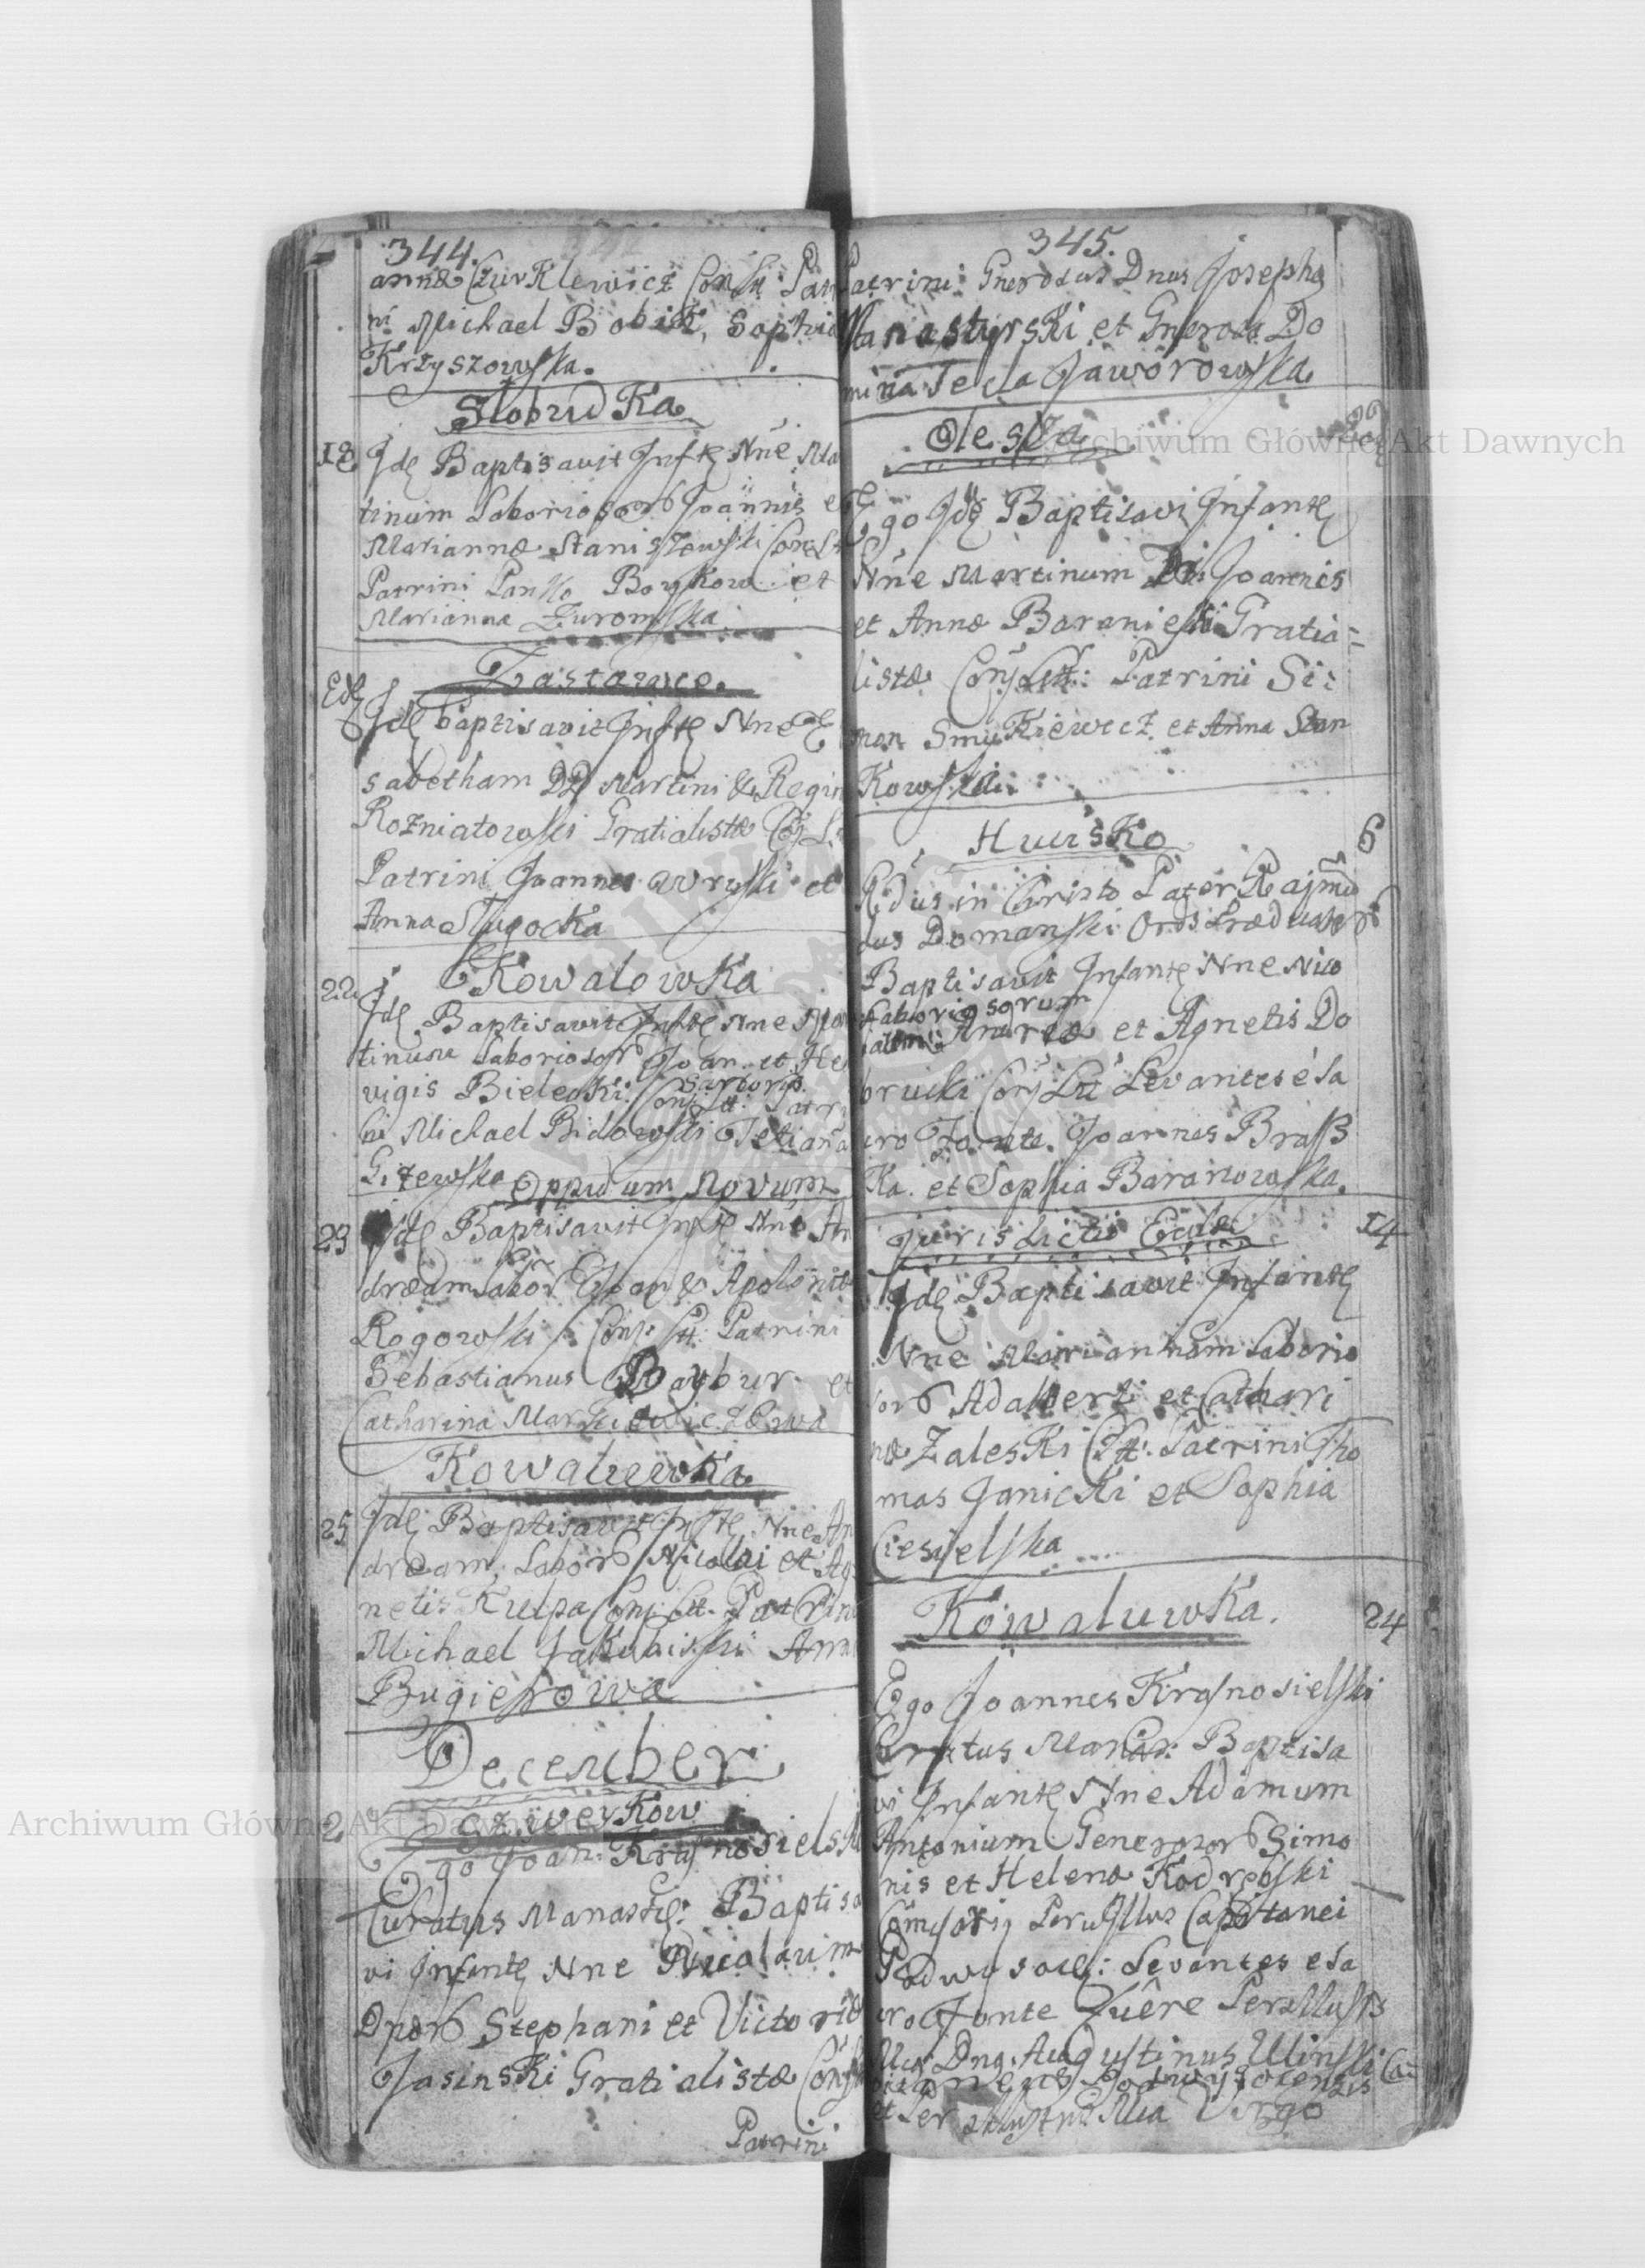 344.
annæ Czurklewicz Patri
ni Michael Bobik, Sophia
Krzyszowska.
Slobudka
18 Idē Baptisavit Inftē Nne Mar
tinum Laboriosorō Joannis et
Mariannæ Staniszewski Conj Lt
Patrini Panko Boykow et
Marianna Zuromska
Zastawce.
Edē Idē baptisavit Inftē Nne E
sabetham DD Martini & Regin
Rozniatowski Gratialistæ
Patrini Joannes et
Anna Slugocka
Kowalowka
22 Idē Baptisavit Inftē Nne Mar
tinum Laboriosorō Joan. et He
vigis Bieleski Sartoris
Conj Ltt: Patri
ni Michael Bidowski Tetianna
Gizewska Oppidum Novum
23 Idē Baptisavit Inftē Nne An
dream Labor & Apoloniæ
Rogowski Conj: Ltt: Patrini
Sebastianus Baybur et
Catharina
Kowaluwka
25 Idē Baptisavit Inftē Nne An
dream, Laborō Nicolai et Ag
netis Kulpa Conj Ltt. Patrini
Michael Jakubiski Anna
Bugierowa
December
2 Czweykow
Ego Joan: Krasnosielski
Curatus Manastē: Baptisa
vi Infantē Nne Nicolaum
Dnorō Stephani et Victoriæ
Jasinski Gratialistæ Conj
Patrini
345.
Patrini Gnerosus Dnus Josephs
Manastyrski et Gnerosa Do
mina Tecla Jaworowska
Olesza
Ego Idē Baptisavi Infantē
Nne Martinum Joannis
et Annæ Baranieski Gratia-
listæ Conj Ltt: Patrini Si:
mon Smykiewicz et Anna Stan
kowska.
Huwsko 6
Rdus in Christo Pater Rajmū
dus Domanski Ord: Prædicatorō
Baptisavit Infantē Nne Nico
Laboriosorum
laum: Andreæ et Agnetis Do
brucki Conj Ltt Levantes e Sa
cro Fonte. Joannes Brass
ka. et Sophia Baranowska.
Jurisdictio Eccle 14
Idē Baptisavit Infantē
Nne Mariannam Laborio
sorō Adalberti et Cathari
næ Zaleski Ltt: Patrini Tho
mas Janicki et Sophia
Ciesielska
Kowaluwka. 24
Ego Joannes Krasnosielski
Curatus Manas: Baptisa
vi Infantē Nne Adamum
Antonium Generosorō Simo
nis et Helenæ Kodrebski
Comisarij Perillus Capitanei
Podwysoce: Levantes e Sa
cro Fonte
Dns. Augustinus Ulinski Ca
pitaneus Podwysocensis
et Virgo
Archiwum Główne Akt Dawnych
Archiwum Główne Akt Dawnych